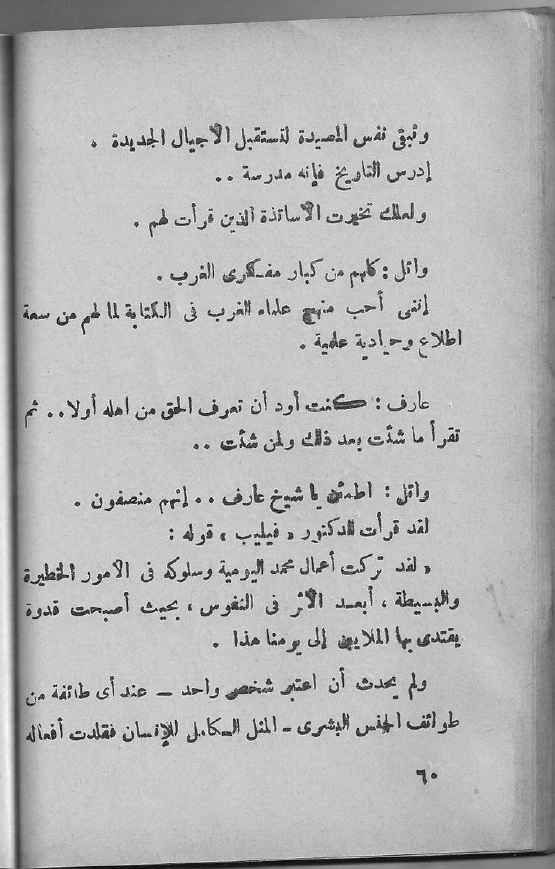 وتبقى نفس المصيدة لتستقبل الأجيال الجديدة .
إدرس التاريخ فإنه مدرسة ..
ولعلك تخيرت الأساتذة الذين قرأت لهم .
وائل : كلهم من كبار مفكرى الغرب .
إننى أحب منهج علماء الغرب فى الكتابة لما لهم من سعة
اطلاع وحيادية علمية .
عارف : كنت أود أن تعرف الحق من أهله أولا .. ثم
تقرأ ما شئت بعد ذلك ولمن شئت ..
وائل : اطمئن يا شيخ عارف .. إنهم منصفون .
لقد قرأت للدكتور « فيليب » قوله :
« لقد تركت أعمال محمد اليومية وسلوكه فى الأمور الخطيرة
والبسيطة ، أبعد الأثر فى النفوس ، بحيث أصبحت قدوة
يقتدى بها الملايين إلى يومنا هذا .
ولم يحدث أن اعتبر شخص واحد - عند أى طائفة من
طوائف الجنس البشرى - المثل الكامل للإنسان فقلدت أفعاله
٦٠